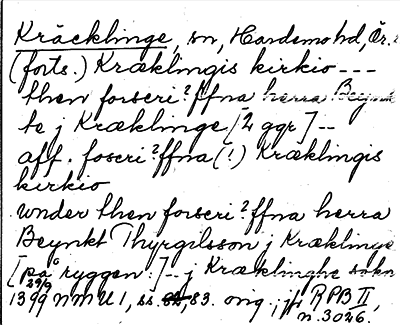 Kräcklinge, sn, Hardemo hd, Ör.
(forts.) Kræklingis kirkio ---
then forscri?ffna herra Beynk
te j Kræklinge [2 ggr] --
aff. foscri?ffna (!) Kræklingis
kirkio
vnder then forscri?ffna herra
Beynkt Thyrgilsson j Kræklinge
[på ryggen:] -- j Kræklinghe sokn
29/9
1399 NMU 1, ss. 83. orig., jfr RPB II,
n. 3026.